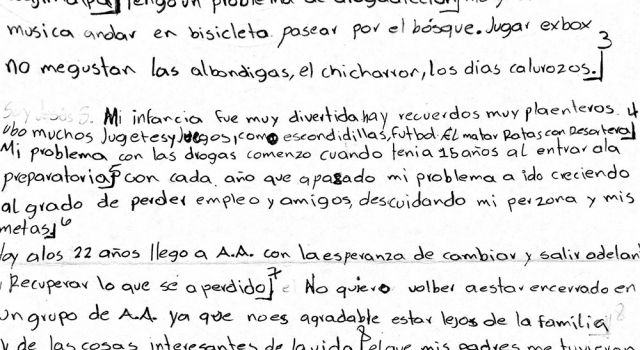 tengo un problema de drogadiccion
musica andar en bisicleta pasear por el bósque. Jugar exbox 3
no megustan las albondigas, el chicharron, los dias calurozos.]
Mi infancia fue muy divertida hay recuerdos muy plaenteros. 4
Ubo muchos Jugetes y Juegos, como escondidillas, futbol. El matar Ratas con Resortera]
Mi problema con las drogas comenzo cuando tenia 15 años al entrar ala
preparatoria] 5 con cada año que apasado mi problema a ido creciendo
al grado de perder empleo y amigos, descuidando mi perzona y mis
metas.] 6
oy alos 22 años llego a A.A. con la esperanza de cambiar y salir adelan
Recuperar lo que se a perdido] 7 No quiero volber aestar encerrado en
un grupo de A.A ya que noes agradable estar lejos de la familia
y de las cosas interesantes de la vida] 8 el que mis padres me tuvieran